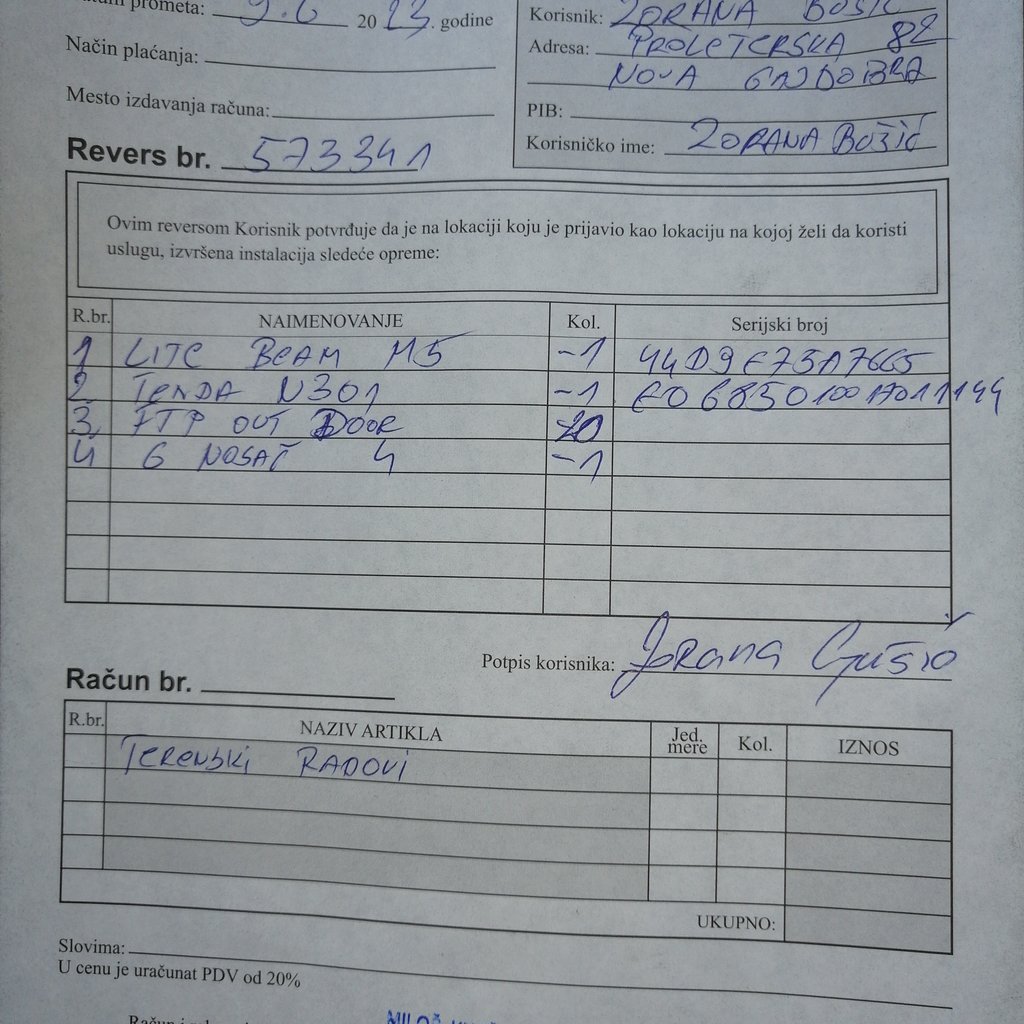 prometa: 9.6 2023. godine
Korisnik: ZORANA BOŠIĆ
Način plaćanja:
Adresa: PROLETERSKA 82
NOVA GAJDOBRA
Mesto izdavanja računa:
PIB:
Korisničko ime: ZORANA BOŽIĆ
Revers br. 573341
Ovim reversom Korisnik potvrđuje da je na lokaciji koju je prijavio kao lokaciju na kojoj želi da koristi
uslugu, izvršena instalacija sledeće opreme:
R.br. NAIMENOVANJE Kol. Serijski broj
1 LITE BEAM M5 -1 44D9E73A7665
2. TENDA N301 -1
3. FTP OUT DOOR 20
4 G NOSAČ 4 -1
Potpis korisnika: Zorana
Račun br.
R.br. NAZIV ARTIKLA Jed. mere Kol. IZNOS
TERENSKI RADOVI
UKUPNO:
Slovima:
U cenu je uračunat PDV od 20%